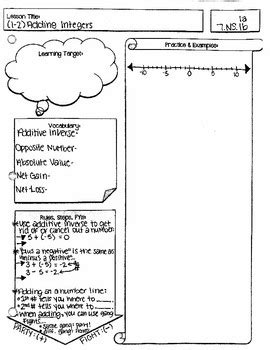 Lesson Title:
(1-2) Adding Integers
7.NS.1b
Learning Target:
Practice & Examples:
-10 -5 0 5 10
Vocabulary:
Additive Inverse-
Opposite Number-
Absolute Value-
Net Gain-
Net Loss-
Rules, Steps, FYIs:
Use additive inverse to get
rid of or cancel out a number.
5 + (-5) = 0
plus a negative is the same as
minus a positive.
3 + (-5) = -2
3 - 5 = -2
Adding on a number line:
1st # tells you where to
2nd # tells you where to
When adding, you can use gang
fights.
Same gang: party!
PARTY: (+)
FIGHT: (-)